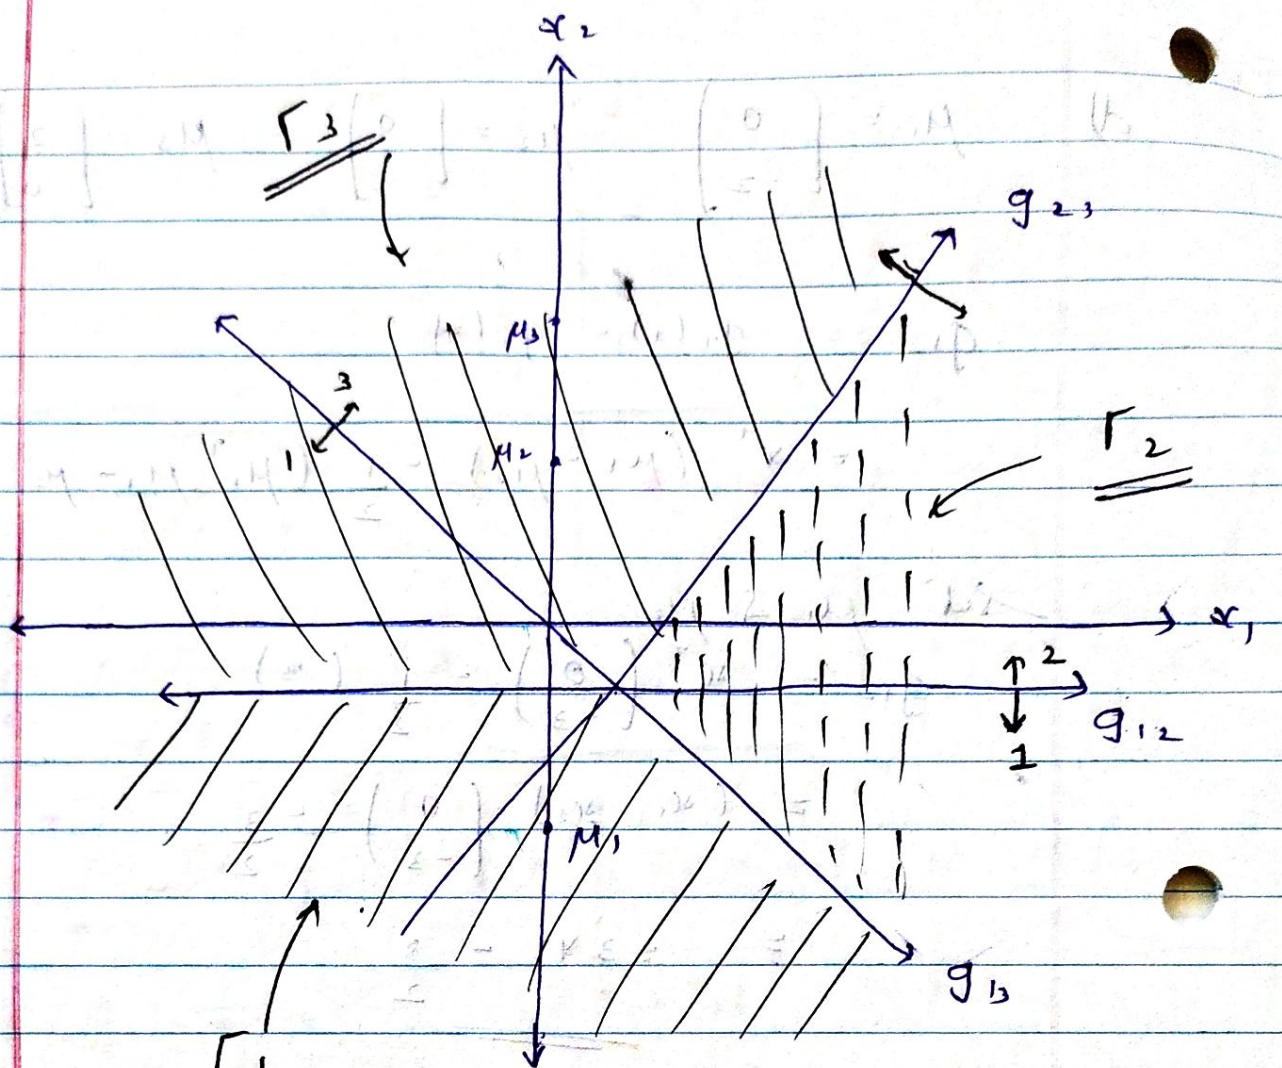 x₂
Γ₃
g₂₃
μ₃
3
1
μ₂
Γ₂
x₁
2
g₁₂
1
μ₁
g₁₃
Γ₁